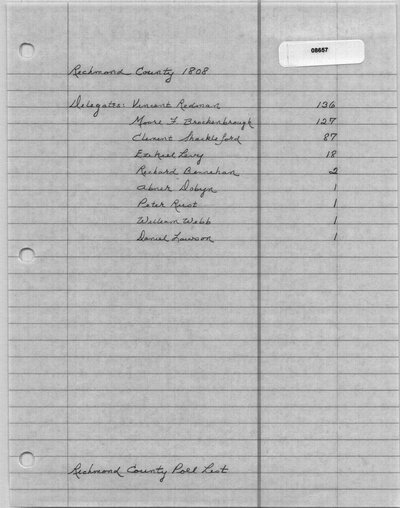 08657
Richmond County 1808
Delegates: Vincent Redman 136
Moore F Brockenbrough 127
Clement Shackleford 87
Ezekiel Levy 18
Richard Bernehan 2
Abner Dobyn 1
Peter Rust 1
William Webb 1
Daniel Lawson 1
Richmond County Poll List